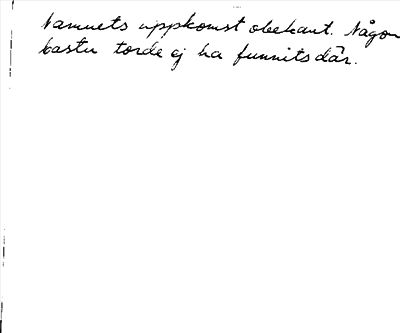 Namnets uppkomst obekant. Någon
bastu torde ej ha funnits där.